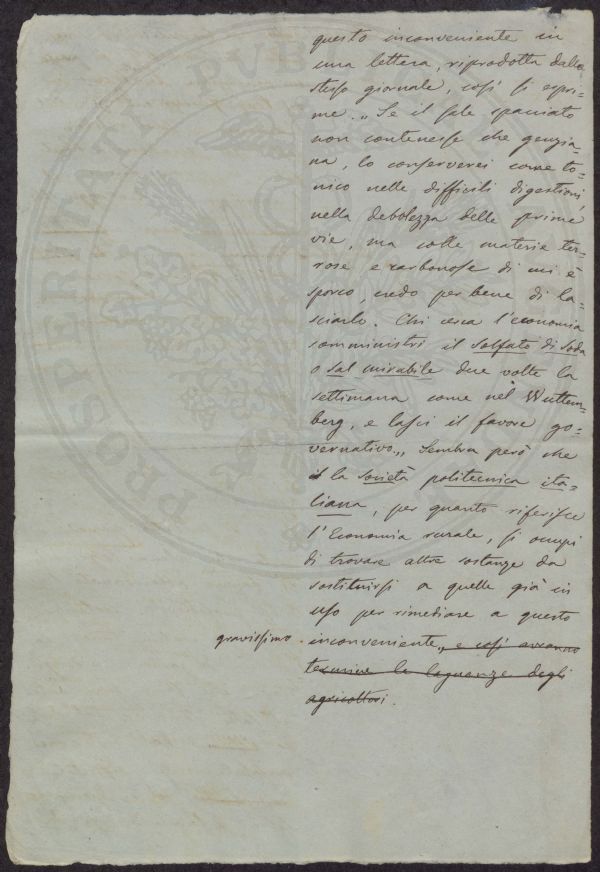 questo inconveniente in
una lettera, riprodotta dallo
stesso giornale, così si espri-
me. „ Se il sale spacciato
non contenesse che genzia-
na, lo conserverei come to-
nico nelle difficili digestioni,
nella debolezza delle prime
vie, ma colle materie ter-
rose e carbonose di cui è
sporco, credo per bene di la-
sciarlo. Chi cerca l'economia
somministri il solfato di soda
o sal mirabile due volte la
settimana come nel Wuttem-
berg, e lasci il favore go-
vernativo„ Sembra però che
la società politecnica ita-
liana, per quanto riferisce
l'Economia rurale, si occupi
di trovare altre sostanze da
sostituirsi a quelle già in
uso per rimediare a questo
gravissimo inconveniente„ e così avranno
termine le lagnanze degli
agricoltori.
PROSPERITATI PUBLICAE